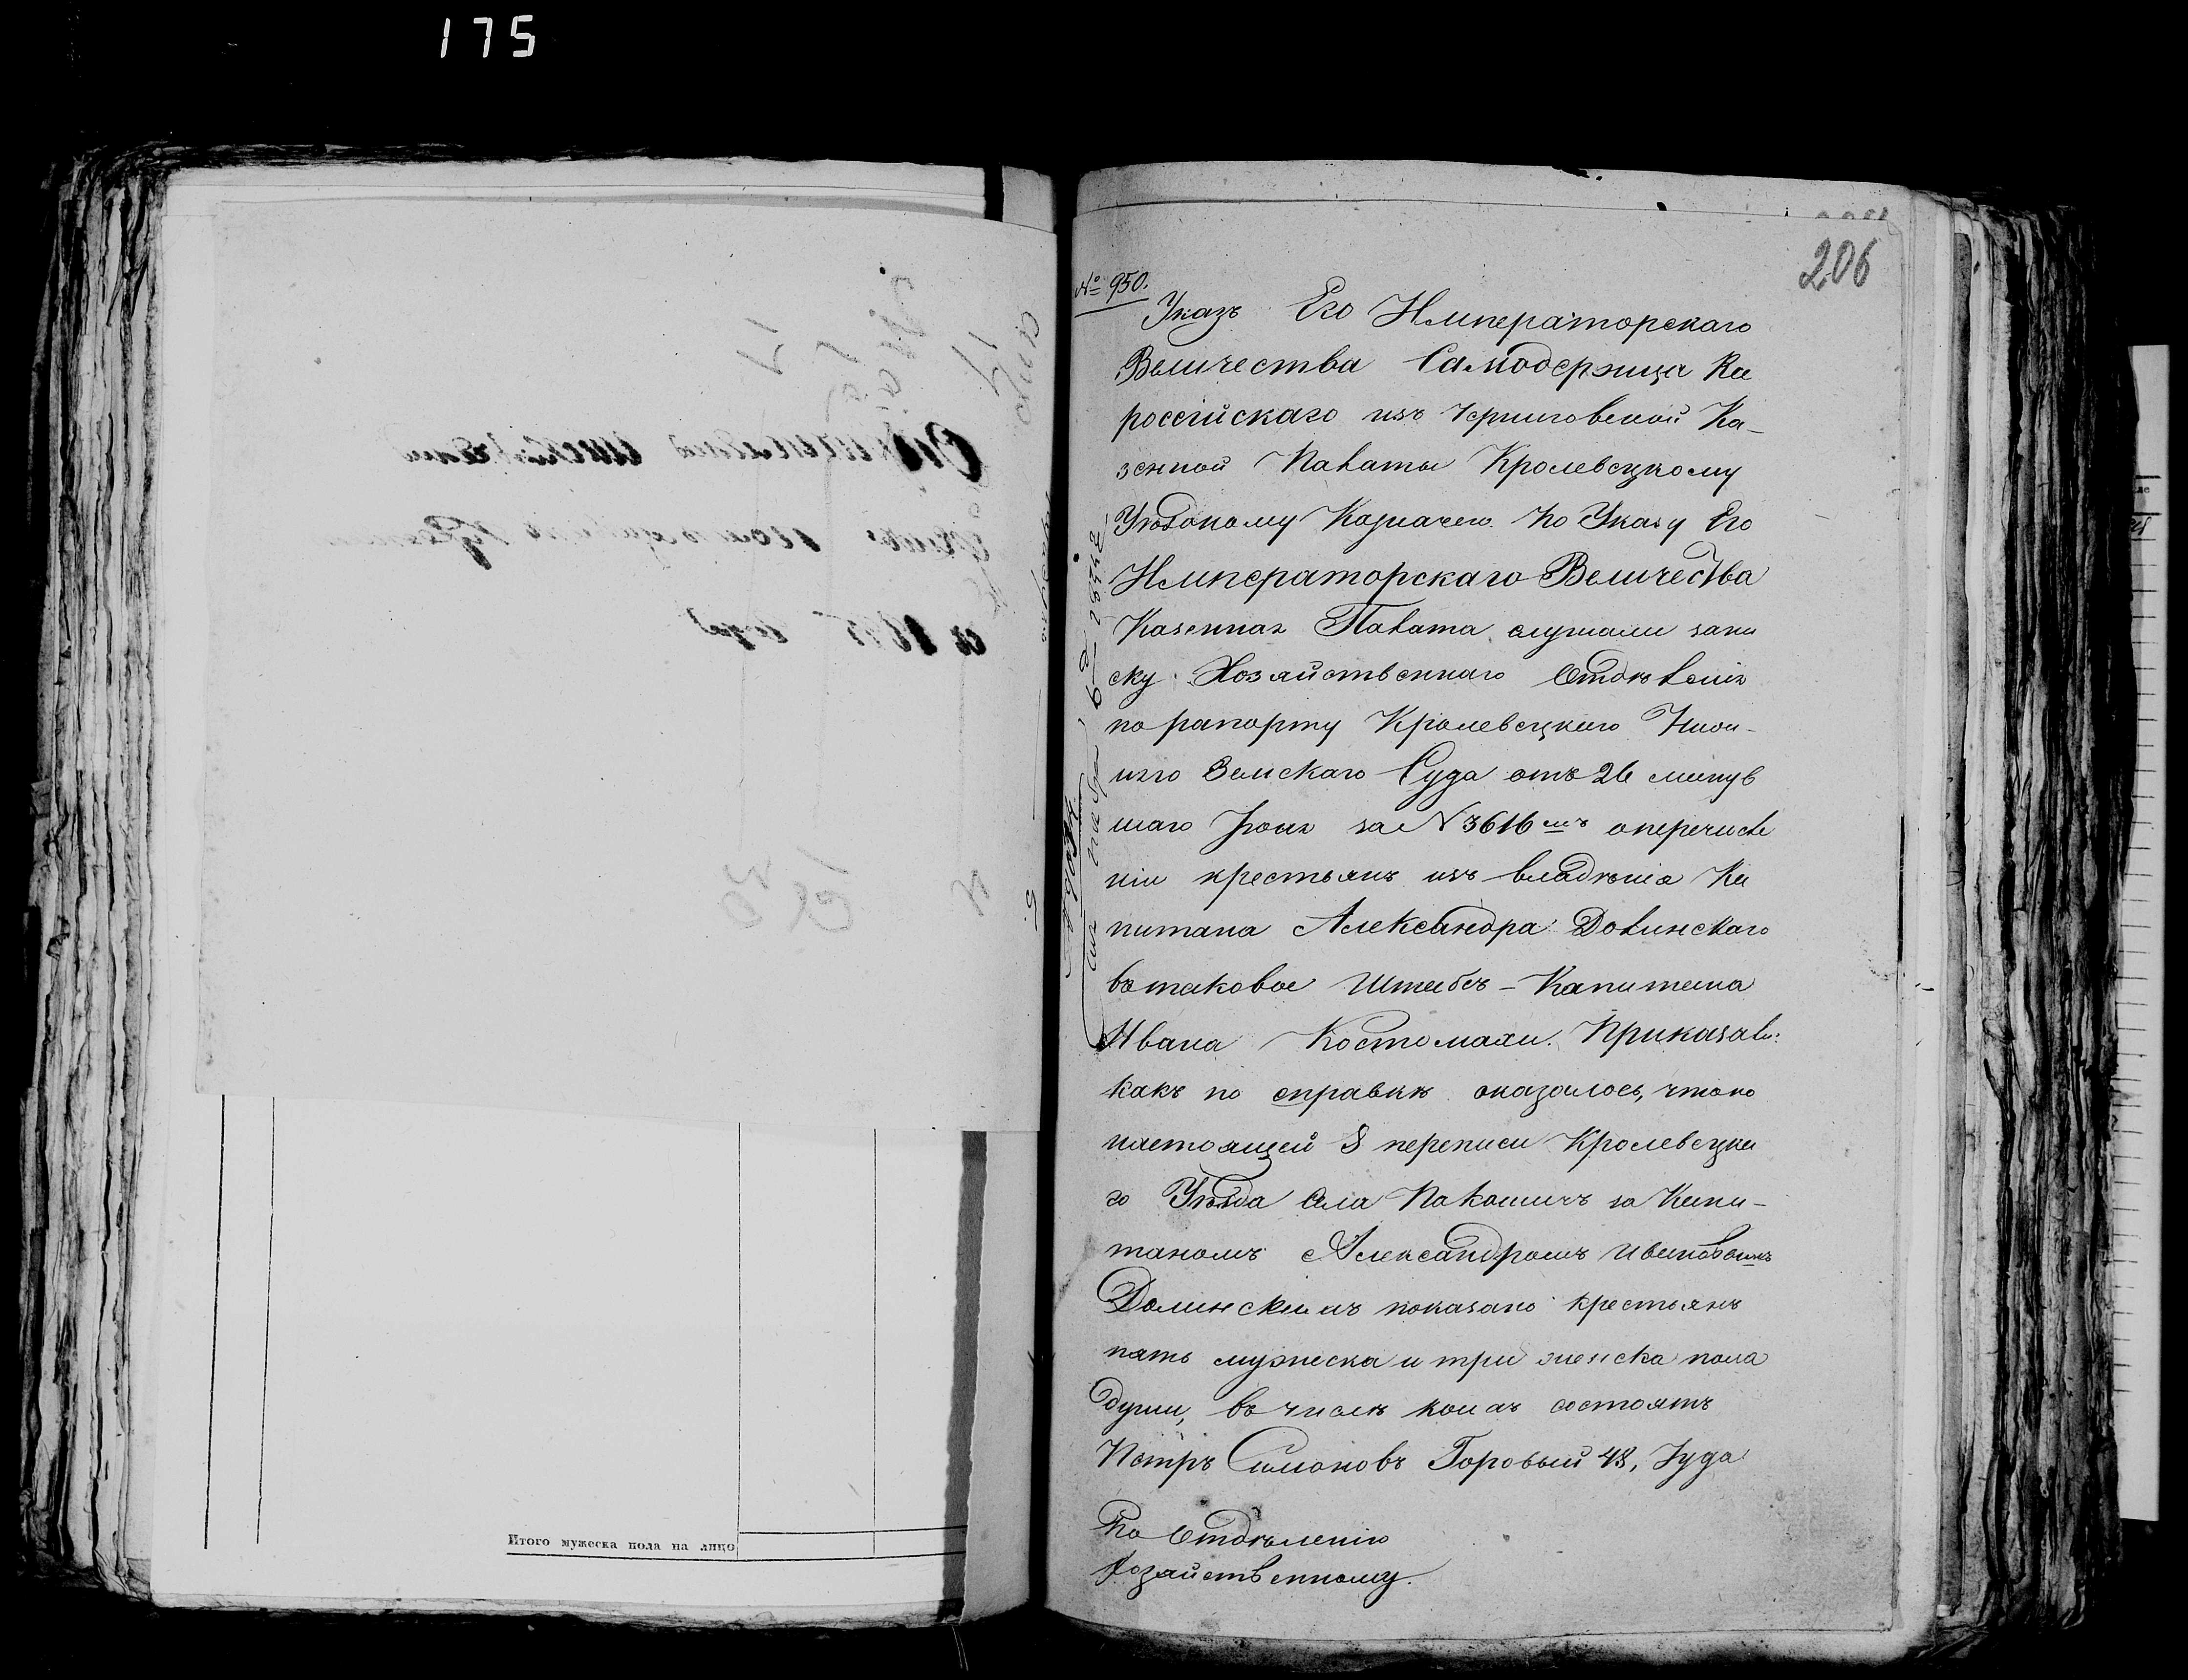 175
206
№ 950.
Указъ Его Императорскаго
Величества Самодержца Все
россійскаго изъ Черниговской Ка-
зенной Палаты Кролевецкому
Уѣздному Казначею. По Указу Его
Императорскаго Величества
Казенная Палата слушали запи
ску Хозяйственнаго Отдѣленія
по рапорту Кролевецкаго Ниж-
няго Земскаго Суда отъ 26 минув
шаго Іюня за № 3616мъ о перечисле
ніи крестьянъ изъ владѣнія Ка
питана Александра Долинскаго
въ таковое Штабсъ-Капитана
Ивана Костомахи. Приказали:
какъ по справкѣ оказалось, что по
настоящей 8 переписи Кролевецка
го Уѣзда села Покошичъ за Капи-
таномъ Александромъ Ивановымъ
Долинскимъ показано крестьянъ
пять мужеска и три женска пола
души, въ числѣ коихъ состоятъ
Петръ Симоновъ Горовый 48, Іуда
По Отдѣленію
Хозяйственному.
Итого мужеска пола на лицо